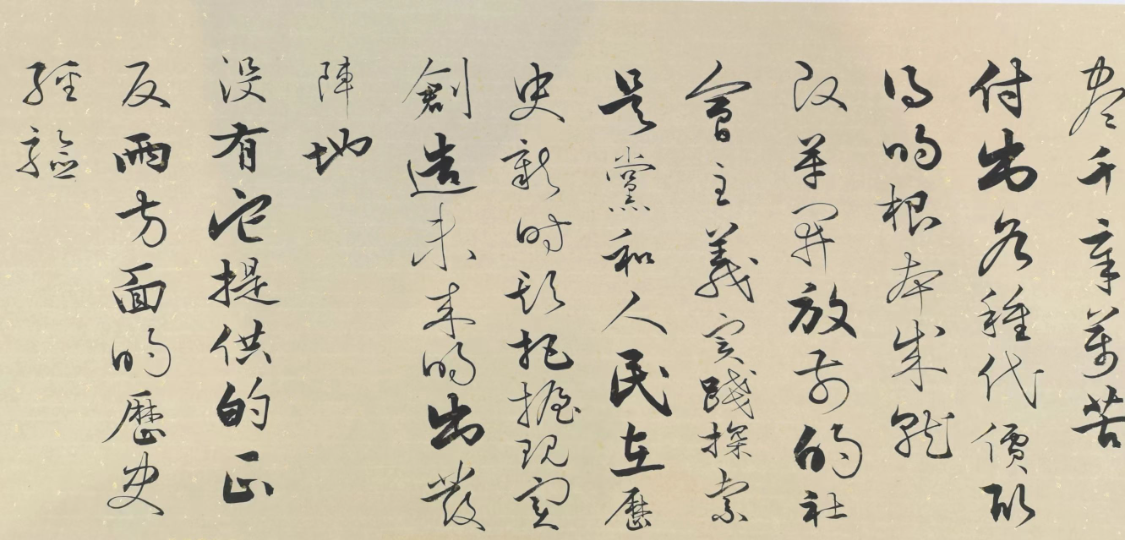 盡千辛萬苦
付出各種代價取
得的根本成就
改革開放前的社
會主義實踐探索
是黨和人民在歷
史新時期把握現實
創造未来的出發
陣地
没有它提供的正
反兩方面的歷史
經驗